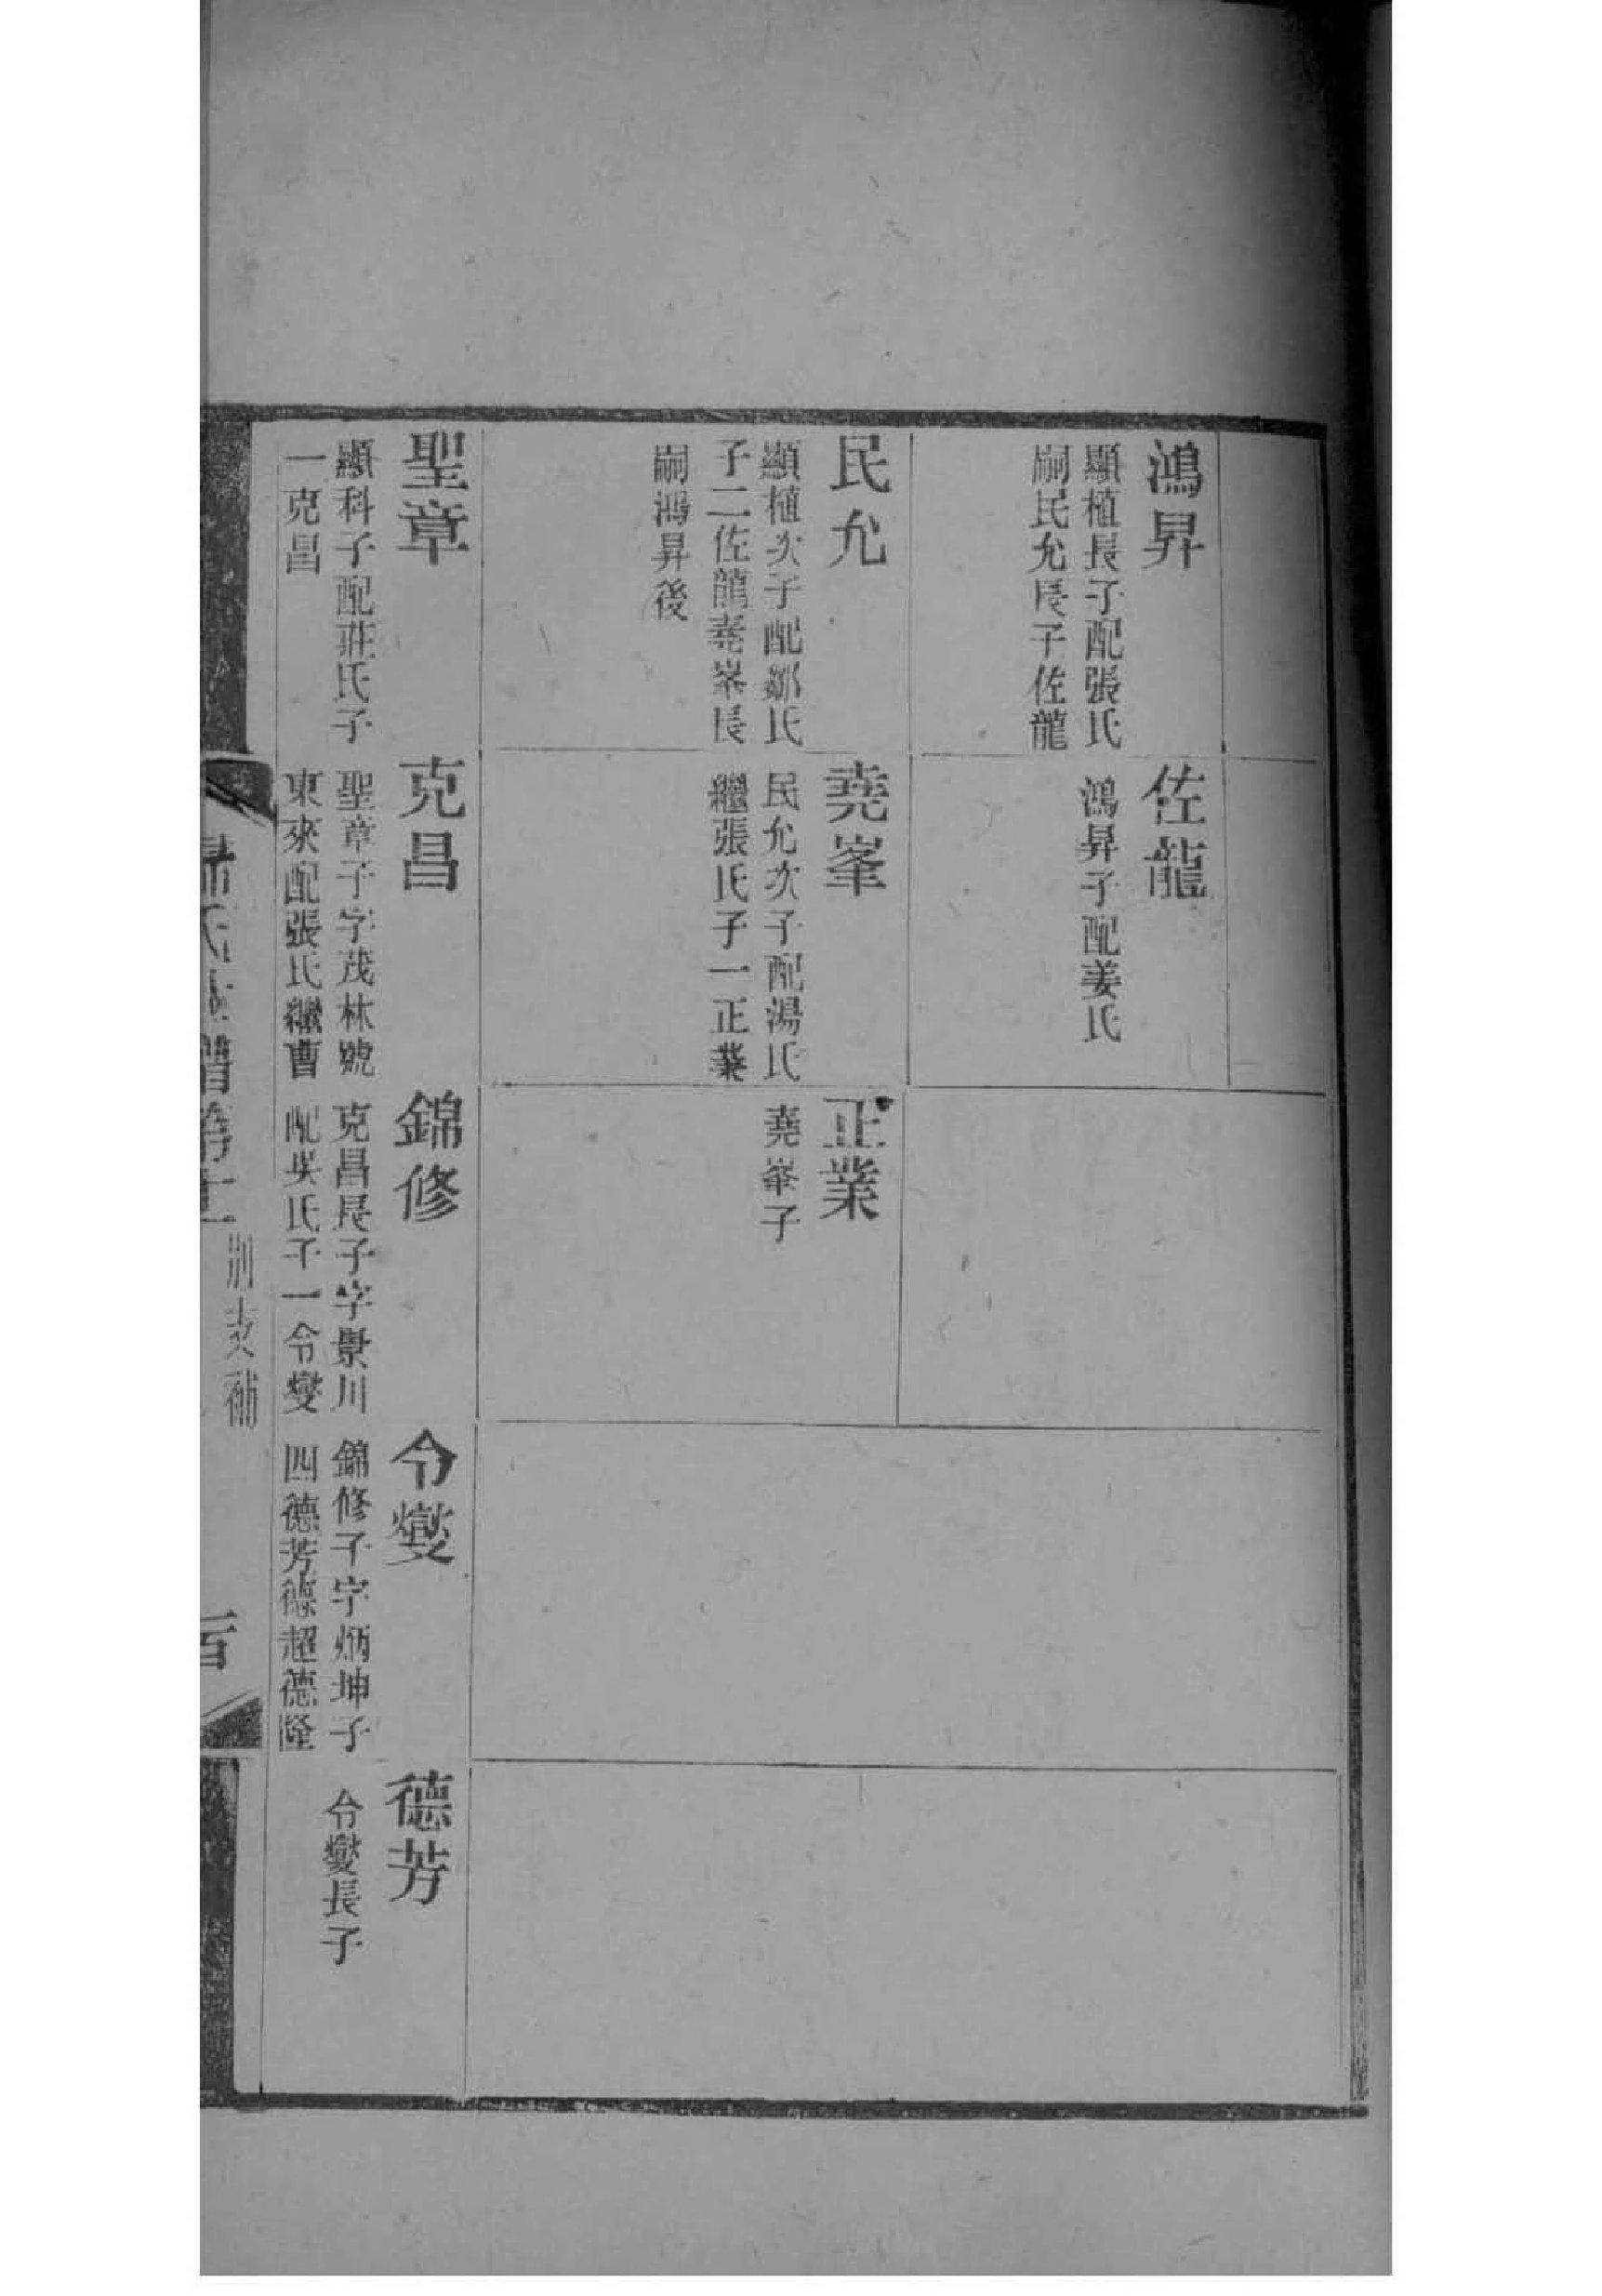 鴻昇
顯植長子配張氏
嗣民允長子佐龍
佐龍
鴻昇子配姜氏
民允
顯植次子配鄒氏
子二佐龍堯峯長
嗣鴻昇後
堯峯
民允次子配湯氏
繼張氏子一正業
正業
堯峯子
聖章
顯科子配莊氏子
一克昌
克昌
聖章子字茂林號
東來配張氏繼曹
錦修
克昌長子字景川
配吳氏子一令燮
令燮
錦修子字炳坤子
四德芳德超德隆
德芳
令燮長子
氏 譜
補
百